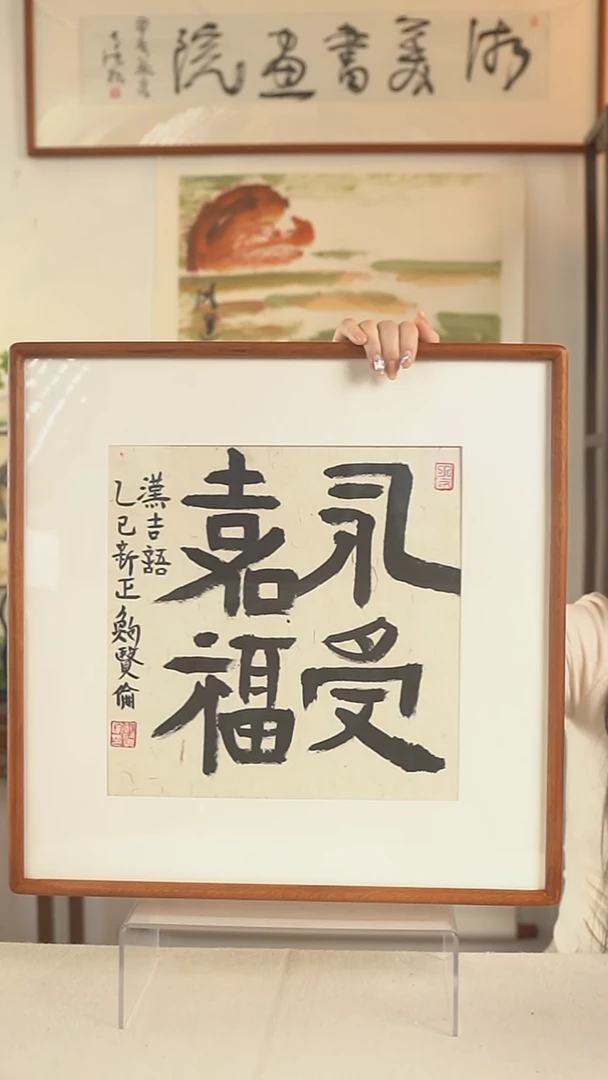 美書畫院
永受
嘉福
漢吉語
乙巳新正鮑賢倫